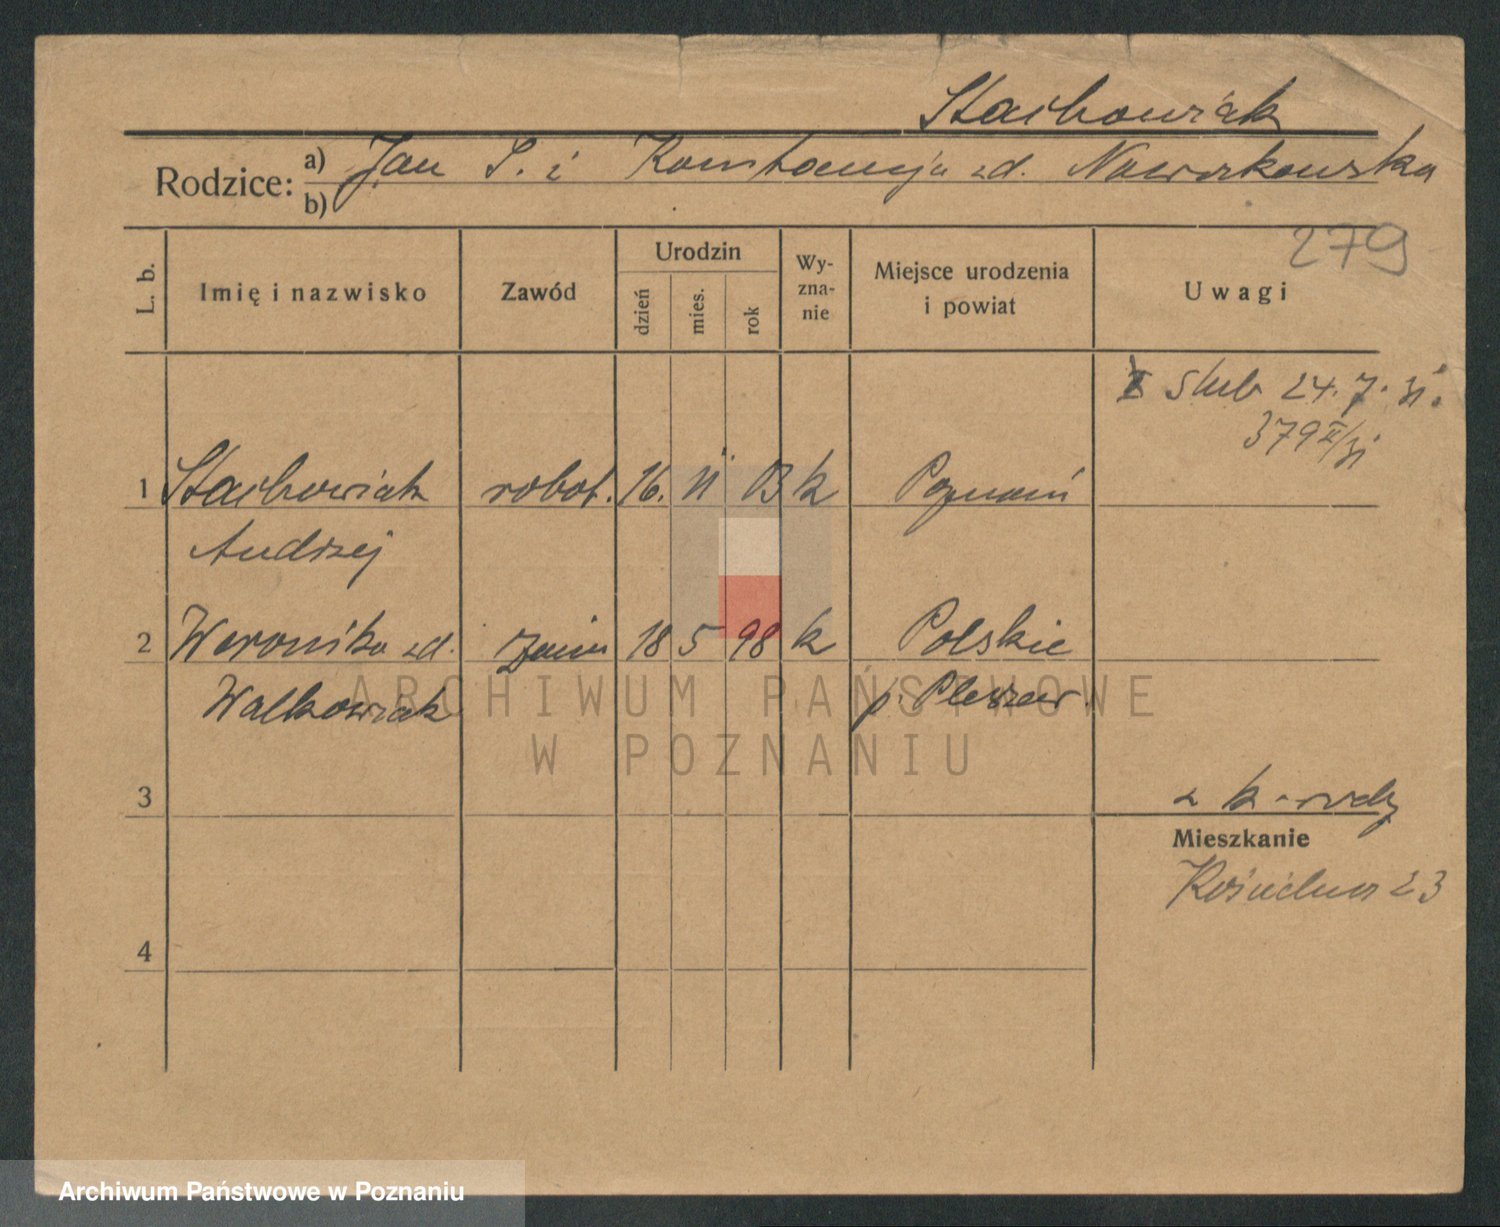 Stachowiak
Rodzice: a) b) Jan S. i Konstancja zd. Nawrkowska
279
L. b.
Imię i nazwisko
Zawód
Urodzin
dzień
mies.
rok
Wy-
zna-
nie
Miejsce urodzenia
i powiat
Uwagi
ślub 24. 7. 31.
379 II/31
1 Stachowiak robot. 16. 11 03 k Poznań
Andrzej
2 Weronika zd. 18 5 98 k Polskie
Walkowiak p. Pleszew.
ARCHIWUM PAŃSTWOWE
W POZNANIU
3
Mieszkanie
23
4
Archiwum Państwowe w Poznaniu